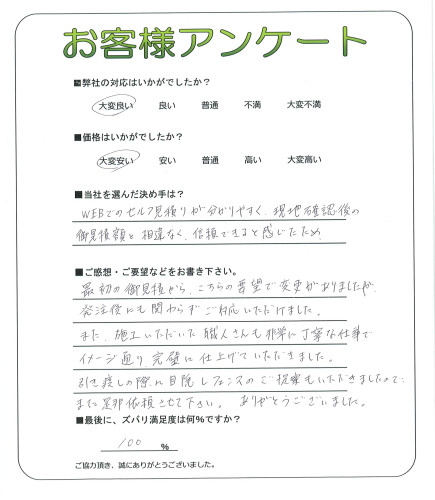 お客様アンケート
■弊社の対応はいかがでしたか？
大変良い 良い 普通 不満 大変不満
■価格はいかがでしたか？
大変安い 安い 普通 高い 大変高い
■当社を選んだ決め手は？
WEBでのセルフ見積りが分かりやすく、現地確認後の
御見積額と相違なく、信頼できると感じたため
■ご感想・ご要望などをお書き下さい。
最初の御見積から、こちらの要望で変更がありましたが、
発注後にも関わらずご対応いただけました。
また、施工いただいた職人さんも非常に丁寧な仕事で
イメージ通り、完璧に仕上げていただきました。
引き渡しの際に目隠しフェンスのご提案もいただきましたので、
また是非依頼させて下さい。 ありがとうございました。
■最後に、ズバリ満足度は何％ですか？
100 ％
ご協力頂き、誠にありがとうございました。